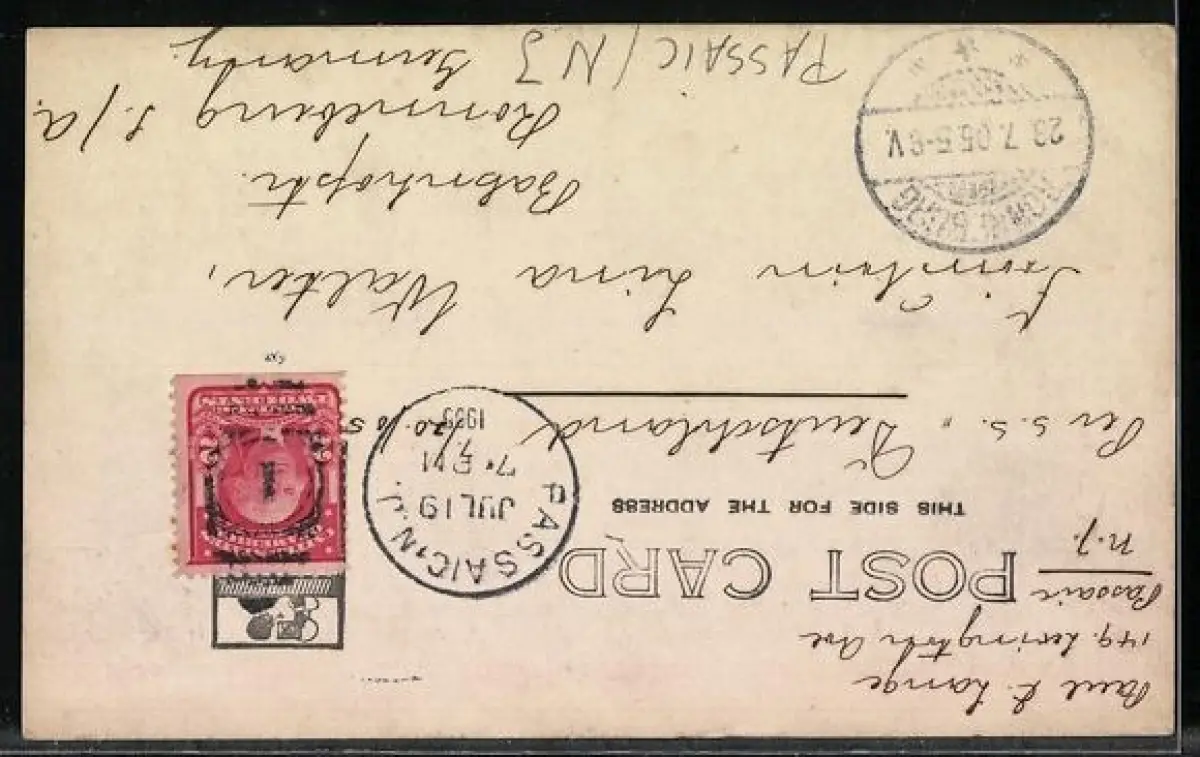 Paul E. Lange
149. Lexington Ave
Passaic
N.J.
POST CARD
THIS SIDE FOR THE ADDRESS
PASSAIC, N.J.
JUL 19
1905
Per S.S. "Deutschland" 7/20. 05.
Fräulein Lina Walter,
Bahnhofstr.
Ronneburg S./A.
Germany.
RONNEBURG
23.7.05.5-6V.
PASSAIC / NJ